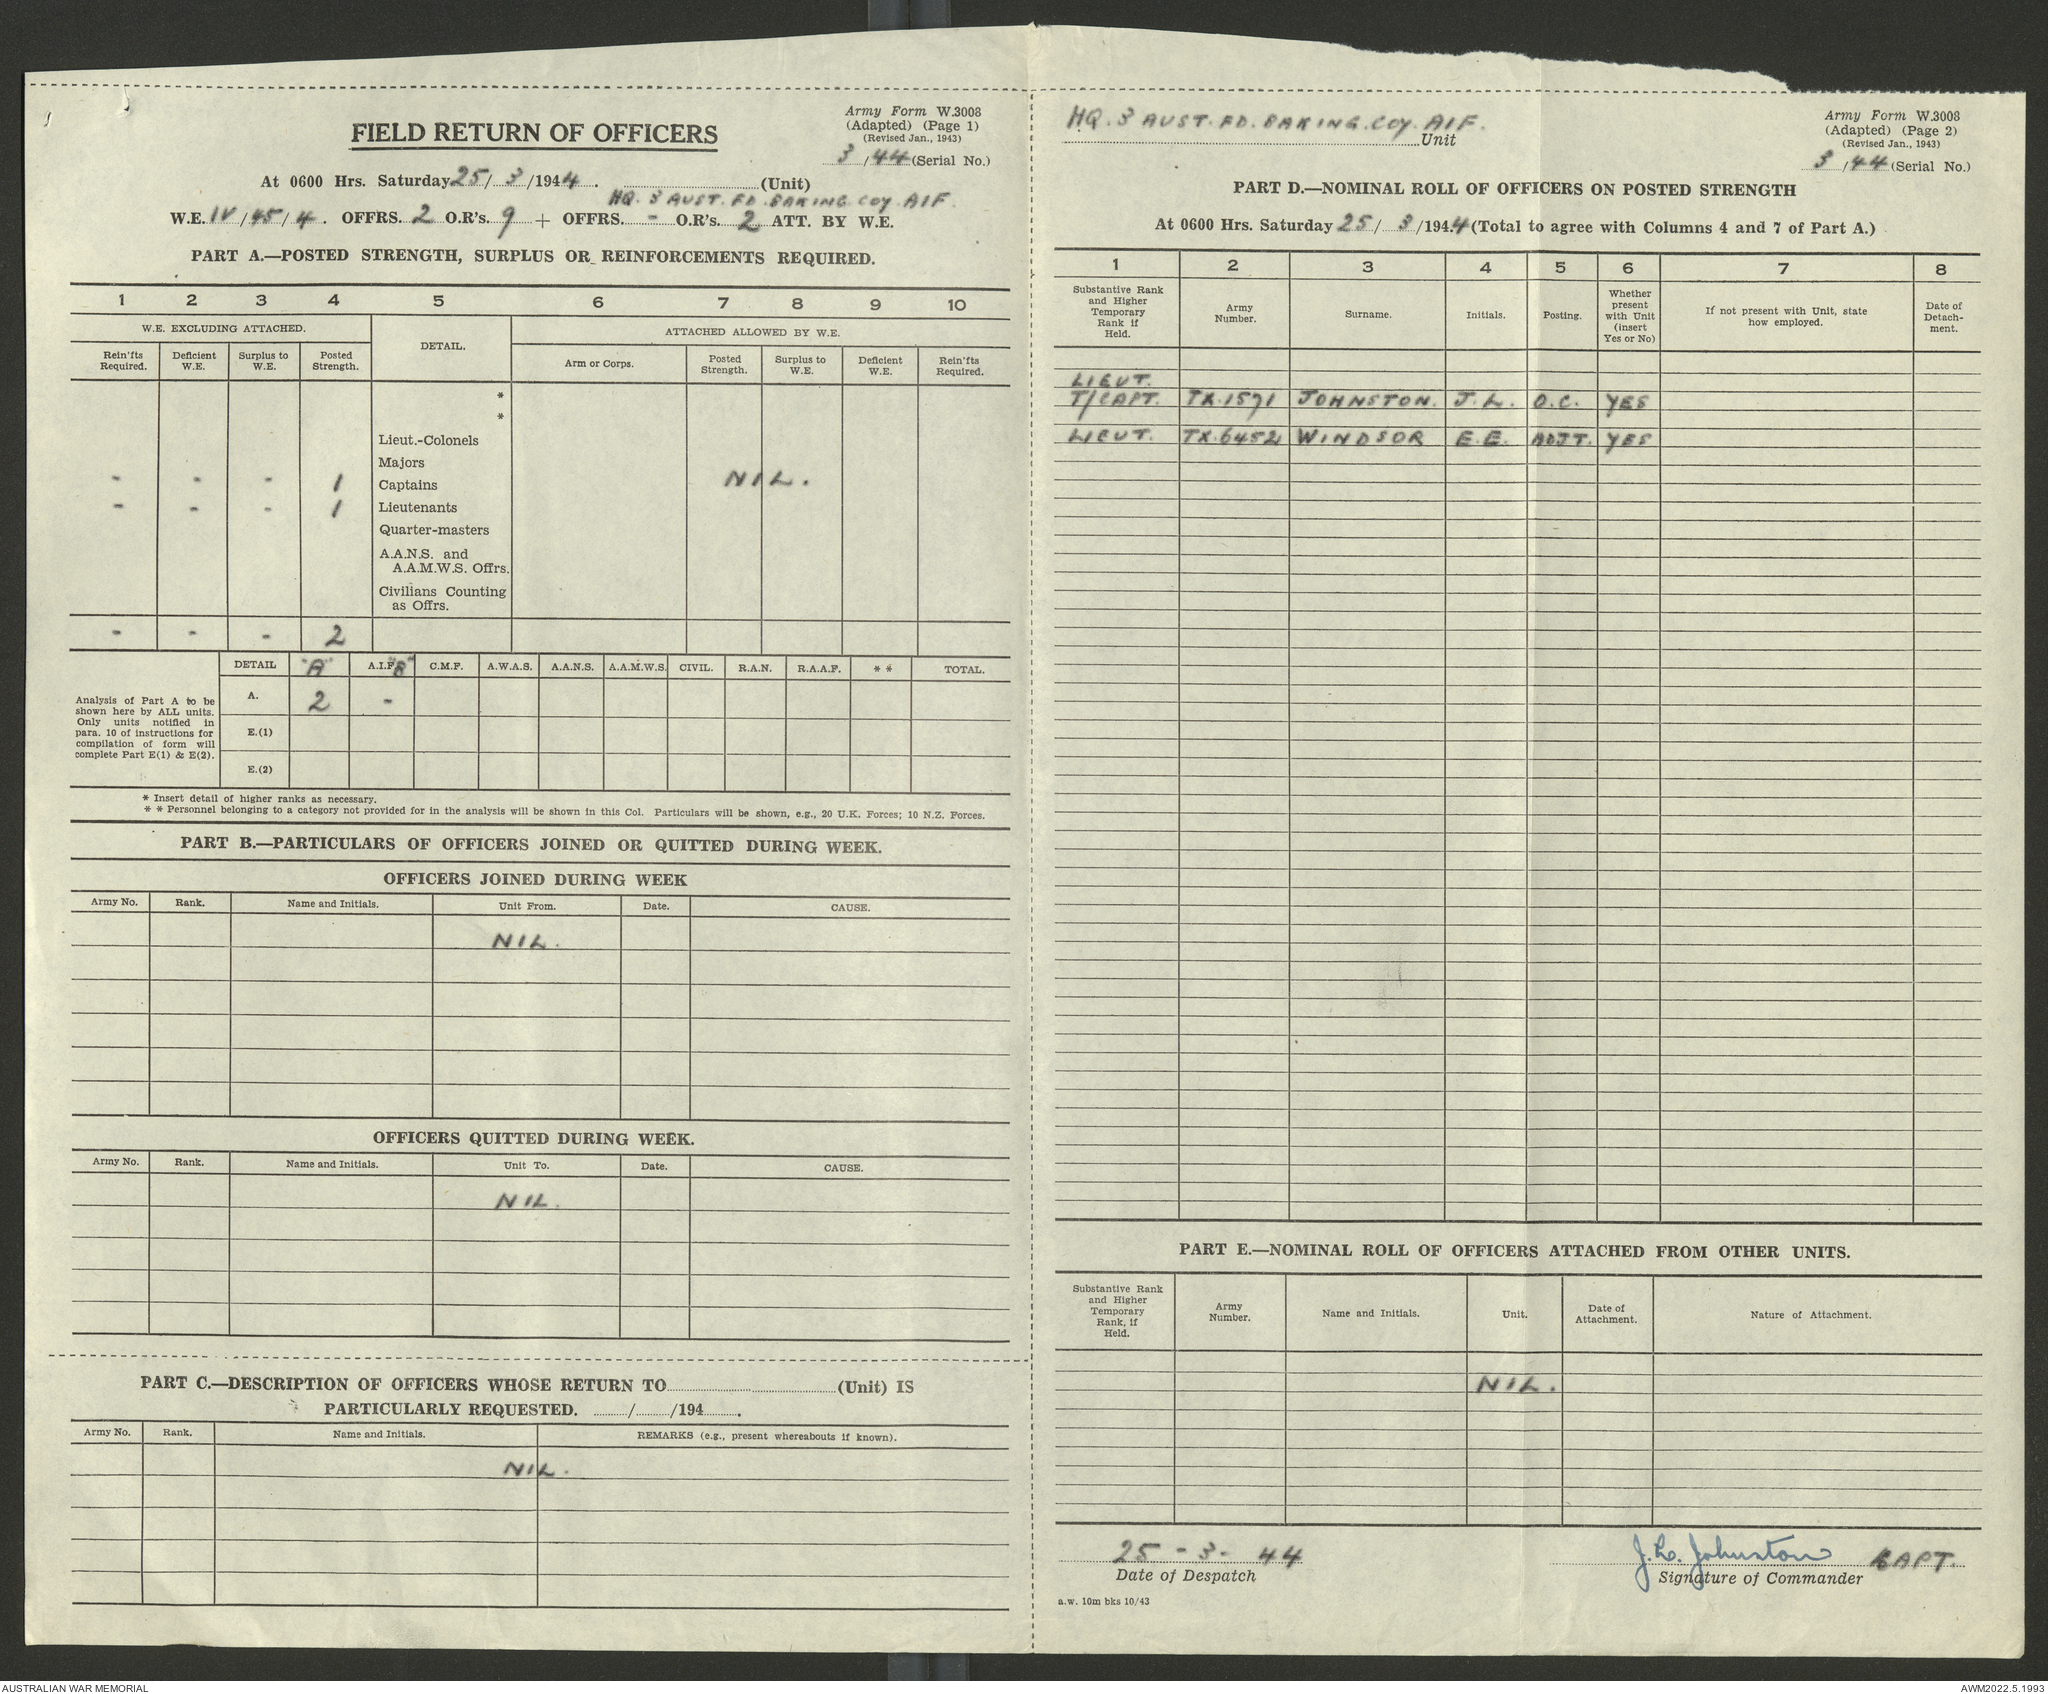 Army Form W.3008
(Adapted) (Page 1)
(Revised Jan., 1943)
3/44 (Serial No.)
FIELD RETURN OF OFFICERS
At 0600 Hrs. Saturday 25/3/1944. (Unit)
HQ. 3 AUST. FD. BAKING. COY. AIF.
W.E. IV/45/4. OFFRS. 2 O.R's. 9 + OFFRS. - O.R's. 2 ATT. BY W.E.
PART A.—POSTED STRENGTH, SURPLUS OR REINFORCEMENTS REQUIRED.
1 2 3 4 5 6 7 8 9 10
W.E. EXCLUDING ATTACHED. DETAIL. ATTACHED ALLOWED BY W.E.
Rein'fts Required. Deficient W.E. Surplus to W.E. Posted Strength. Arm or Corps. Posted Strength. Surplus to W.E. Deficient W.E. Rein'fts Required.
*
*
Lieut.-Colonels
Majors
- - - 1 Captains NIL.
- - - 1 Lieutenants
Quarter-masters
A.A.N.S. and
A.A.M.W.S. Offrs.
Civilians Counting
as Offrs.
- - - 2
DETAIL "A" A.I.F. "B" C.M.F. A.W.A.S. A.A.N.S. A.A.M.W.S. CIVIL. R.A.N. R.A.A.F. * * TOTAL.
Analysis of Part A to be
shown here by ALL units.
Only units notified in
para. 10 of instructions for
compilation of form will
complete Part E(1) & E(2).
A. 2 -
E.(1)
E.(2)
* Insert detail of higher ranks as necessary.
* * Personnel belonging to a category not provided for in the analysis will be shown in this Col. Particulars will be shown, e.g., 20 U.K. Forces; 10 N.Z. Forces.
PART B.—PARTICULARS OF OFFICERS JOINED OR QUITTED DURING WEEK.
OFFICERS JOINED DURING WEEK
Army No. Rank. Name and Initials. Unit From. Date. CAUSE.
NIL.
OFFICERS QUITTED DURING WEEK.
Army No. Rank. Name and Initials. Unit To. Date. CAUSE.
NIL.
PART C.—DESCRIPTION OF OFFICERS WHOSE RETURN TO (Unit) IS
PARTICULARLY REQUESTED. / /194 .
Army No. Rank. Name and Initials. REMARKS (e.g., present whereabouts if known).
NIL.
HQ. 3 AUST. FD. BAKING. COY. AIF.
Unit
Army Form W.3008
(Adapted) (Page 2)
(Revised Jan., 1943)
3/44 (Serial No.)
PART D.—NOMINAL ROLL OF OFFICERS ON POSTED STRENGTH
At 0600 Hrs. Saturday 25/3/1944 (Total to agree with Columns 4 and 7 of Part A.)
1 2 3 4 5 6 7 8
Substantive Rank and Higher Temporary Rank if Held. Army Number. Surname. Initials. Posting. Whether present with Unit (insert Yes or No) If not present with Unit, state how employed. Date of Detach-ment.
LIEUT.
T/CAPT. TX.1571 JOHNSTON. J.L. O.C. YES
LIEUT. TX.6452 WINDSOR E.E. ADJT. YES
PART E.—NOMINAL ROLL OF OFFICERS ATTACHED FROM OTHER UNITS.
Substantive Rank and Higher Temporary Rank, if Held. Army Number. Name and Initials. Unit. Date of Attachment. Nature of Attachment.
NIL.
25 - 3 - 44 J.L. Johnston CAPT.
Date of Despatch Signature of Commander
a.w. 10m bks 10/43
AUSTRALIAN WAR MEMORIAL AWM2022.5.1993